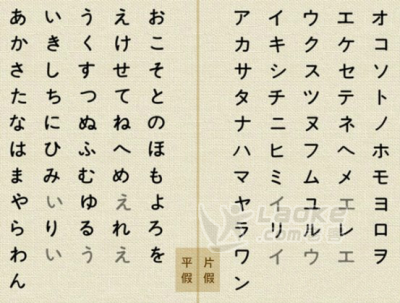 あ い う え お
か き く け こ
さ し す せ そ
た ち つ て と
な に ぬ ね の
は ひ ふ へ ほ
ま み む め も
や い ゆ え よ
ら り る れ ろ
わ い う え を
ん
平假
ア イ ウ エ オ
カ キ ク ケ コ
サ シ ス セ ソ
タ チ ツ テ ト
ナ ニ ヌ ネ ノ
ハ ヒ フ ヘ ホ
マ ミ ム メ モ
ヤ イ ユ エ ヨ
ラ リ ル レ ロ
ワ イ ウ エ ヲ
ン
片假
Laoke
.com